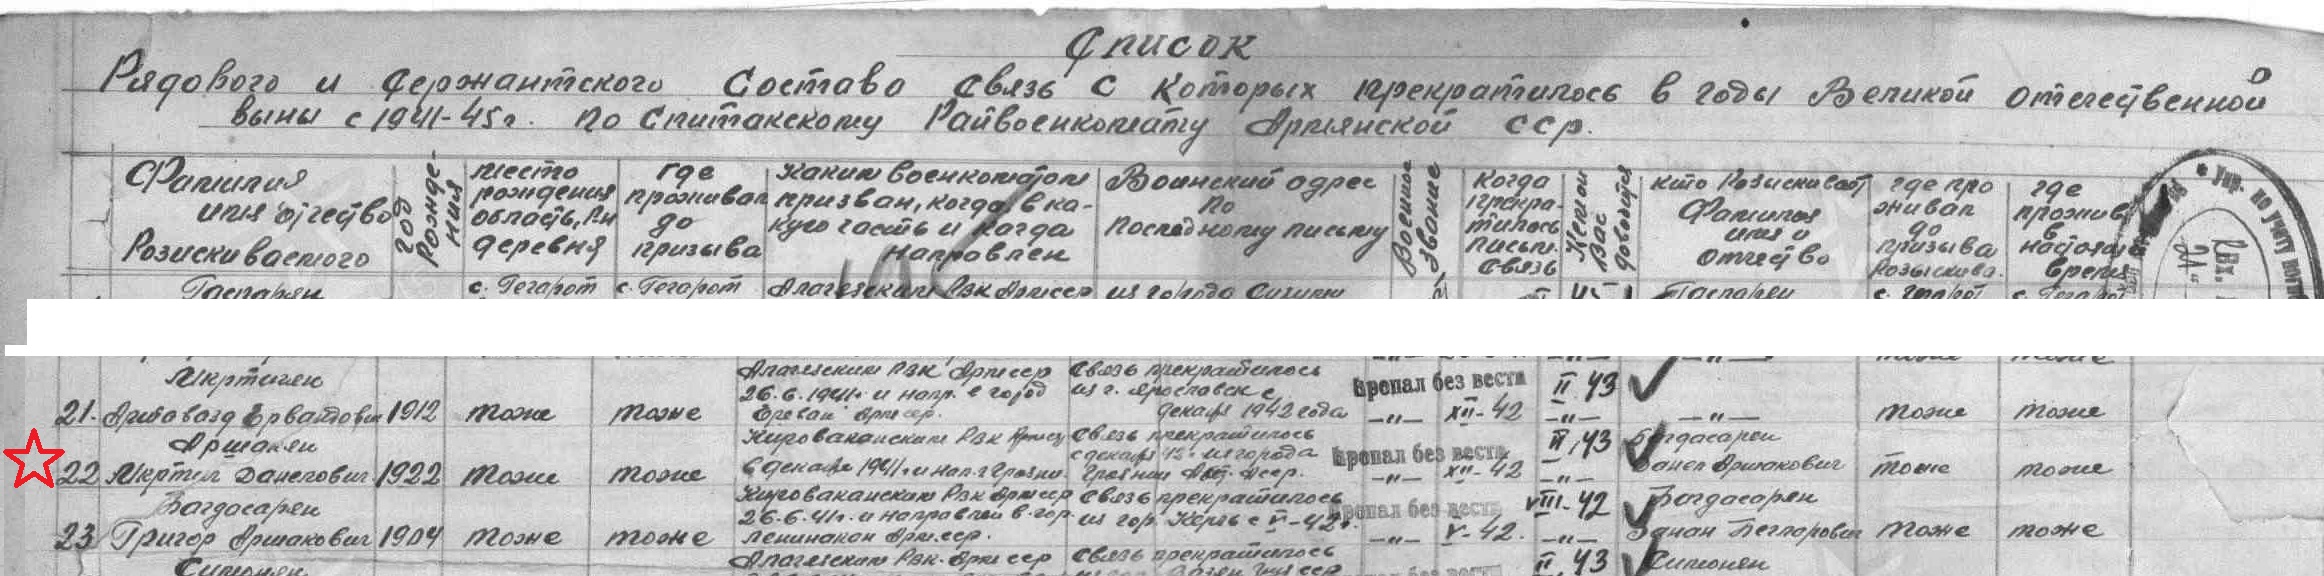 Список
Рядового и Сержантского Состава Связь с которых прекратилось в годы Великой отечественной
выны с 1941-45 г. по Спитакскому Райвоенкомату Армянской ССР.
Фамилия
имя отчество
Розискиваемого
год
Рождения
место
рождения
область, Рн
деревня
где
проживал
до
призыва
Каким военкоматом
призван, когда, в ка-
кую часть и когда
направлен
Воинский адрес
по
последному письму
Военное
звание
когда
прекра-
тилось
письм.
связь
кто Розыскивает
Фамилия
имя и
отчество
где про
живал
до
призыва
Розыскива.
где
прожив
в
настоящ
время
Гаспарян
с. Гегарот
с. Гегарот
Алагезским Рвк Армсср
из города
Гаспарян
с. Гегарот
с. Гегарот
Мкртичян
21. Артавазд Ервандович
1912
тоже
тоже
Алагезским Рвк Армсср
26.6.1941г. и напр. в город
Ереван Армсср.
Связь прекратилось
из г. Ярославск с
декабря 1942 года
Пропал без вести
—„— XII-42
II 43
—„—
—„—
тоже
тоже
Аршакян
22 Мкртич Данелович
1922
тоже
тоже
Кироваканским Рвк Армсср
в декабре 1941г. и нап. г Грозни.
Связь прекратилось
с декабря 42г. из города
Грозни
Пропал без вести
—„— XII-42
II 43
—„—
Багдасарян
Данел Аршакович
тоже
тоже
Багдасарян
23 Григор Аршакович
1904
тоже
тоже
Кироваканским Рвк Армсср
26.6.41г. и направлен в гор.
Ленинакан Армсср.
Связь прекратилось
из гор. Керчь с V-42г.
Пропал без вести
—„— V-42.
VIII-42
—„—
Багдасарян
тоже
тоже
Симонян
Алагезским Рвк. Армсср
Связь прекратилось
II 43
Симонян